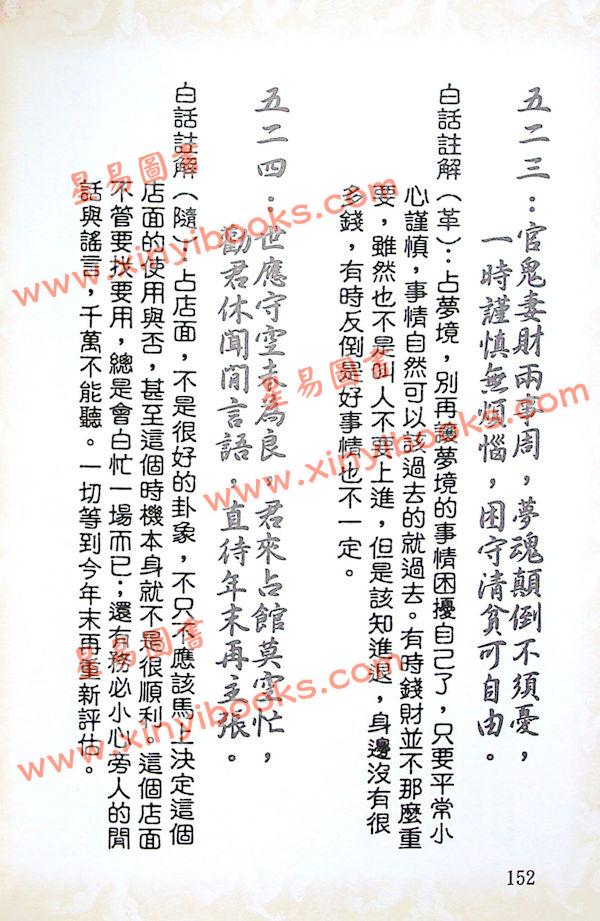 五二三：官鬼妻財兩事周，夢魂顛倒不須憂，
一時謹慎無煩惱，困守清貧可自由。
白話註解（革）：占夢境，別再讓夢境的事情困擾自己了，只要平常小
心謹慎，事情自然可以該過去的就過去。有時錢財並不那麼重
要，雖然也不是叫人不要上進，但是該知進退，身邊沒有很
多錢，有時反倒是好事情也不一定。
五二四：世應守空春為良，君來占館莫空忙，
勸君休聞閒言語，直待年末再主張。
白話註解（隨）：占店面，不是很好的卦象，不只不應該馬上決定這個
店面的使用與否，甚至這個時機本身就不是很順利。這個店面
不管要找要用，總是會白忙一場而已；還有務必小心旁人的閒
話與謠言，千萬不能聽。一切等到今年末再重新評估。
152
星易圖書
www.xinyibooks.com
星易圖書
www.xinyibooks.com
星易圖書
www.xinyibooks.com
星易圖書
www.xinyibooks.com